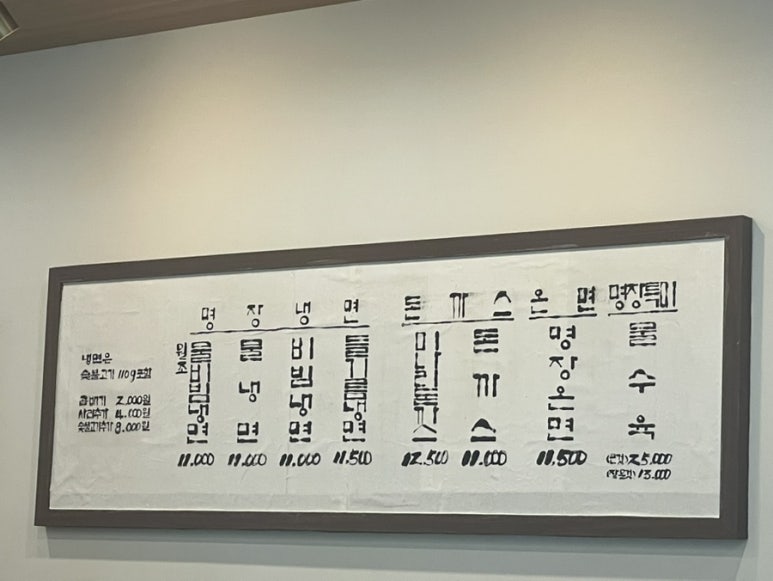 냉면은
숯불고기 110g포함
곱빼기 2.000원
사리추가 4.000원
숯불고기추가 8.000원
명장냉면
원조
물비빔냉면
11.000
물냉면
11.000
비빔냉면
11.000
들기름냉면
11.500
돈까스
미나리돈까스
12.500
돈까스
11.000
온면
명장온면
11.500
명장특미
물수육
(큰것) 25.000
(작은것) 13.000